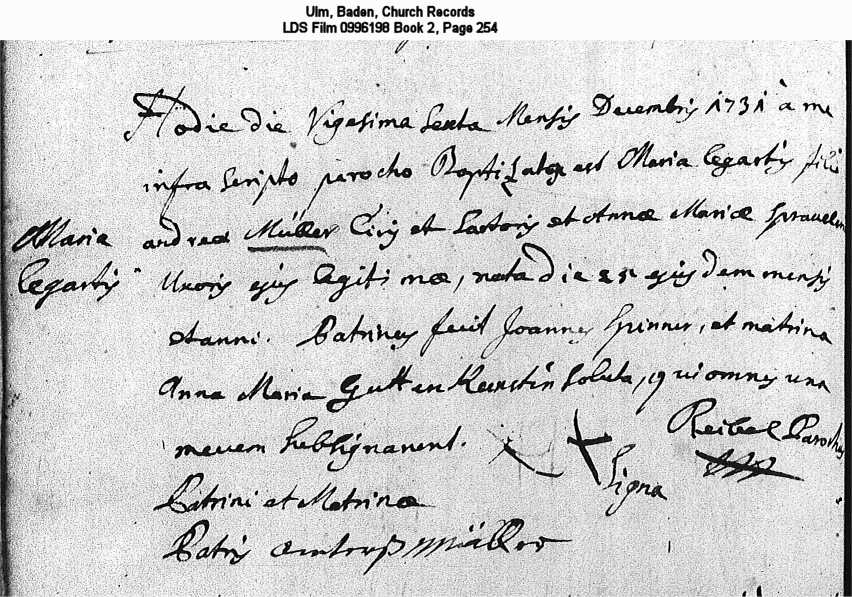 Ulm, Baden, Church Records
LDS Film 0996198 Book 2, Page 254
Hodie die Vigesima Sexta Mensis Decembris 1731 à me
infra Scripto parocho Baptisata est Maria Legartis filia
Maria
andreæ Müller Civis et Sartoris et Annæ Mariæ
Legartis
Uxoris ejus legitimæ, nata die 25 ejusdem mensis
et anni. Patrinus fuit Joannes Spinner, et matrina
Anna Maria soluta, qui omnes una
mecum subsignarunt.
Reibel Parochus
Signa
Patrini et Matrinæ
Patris Müller